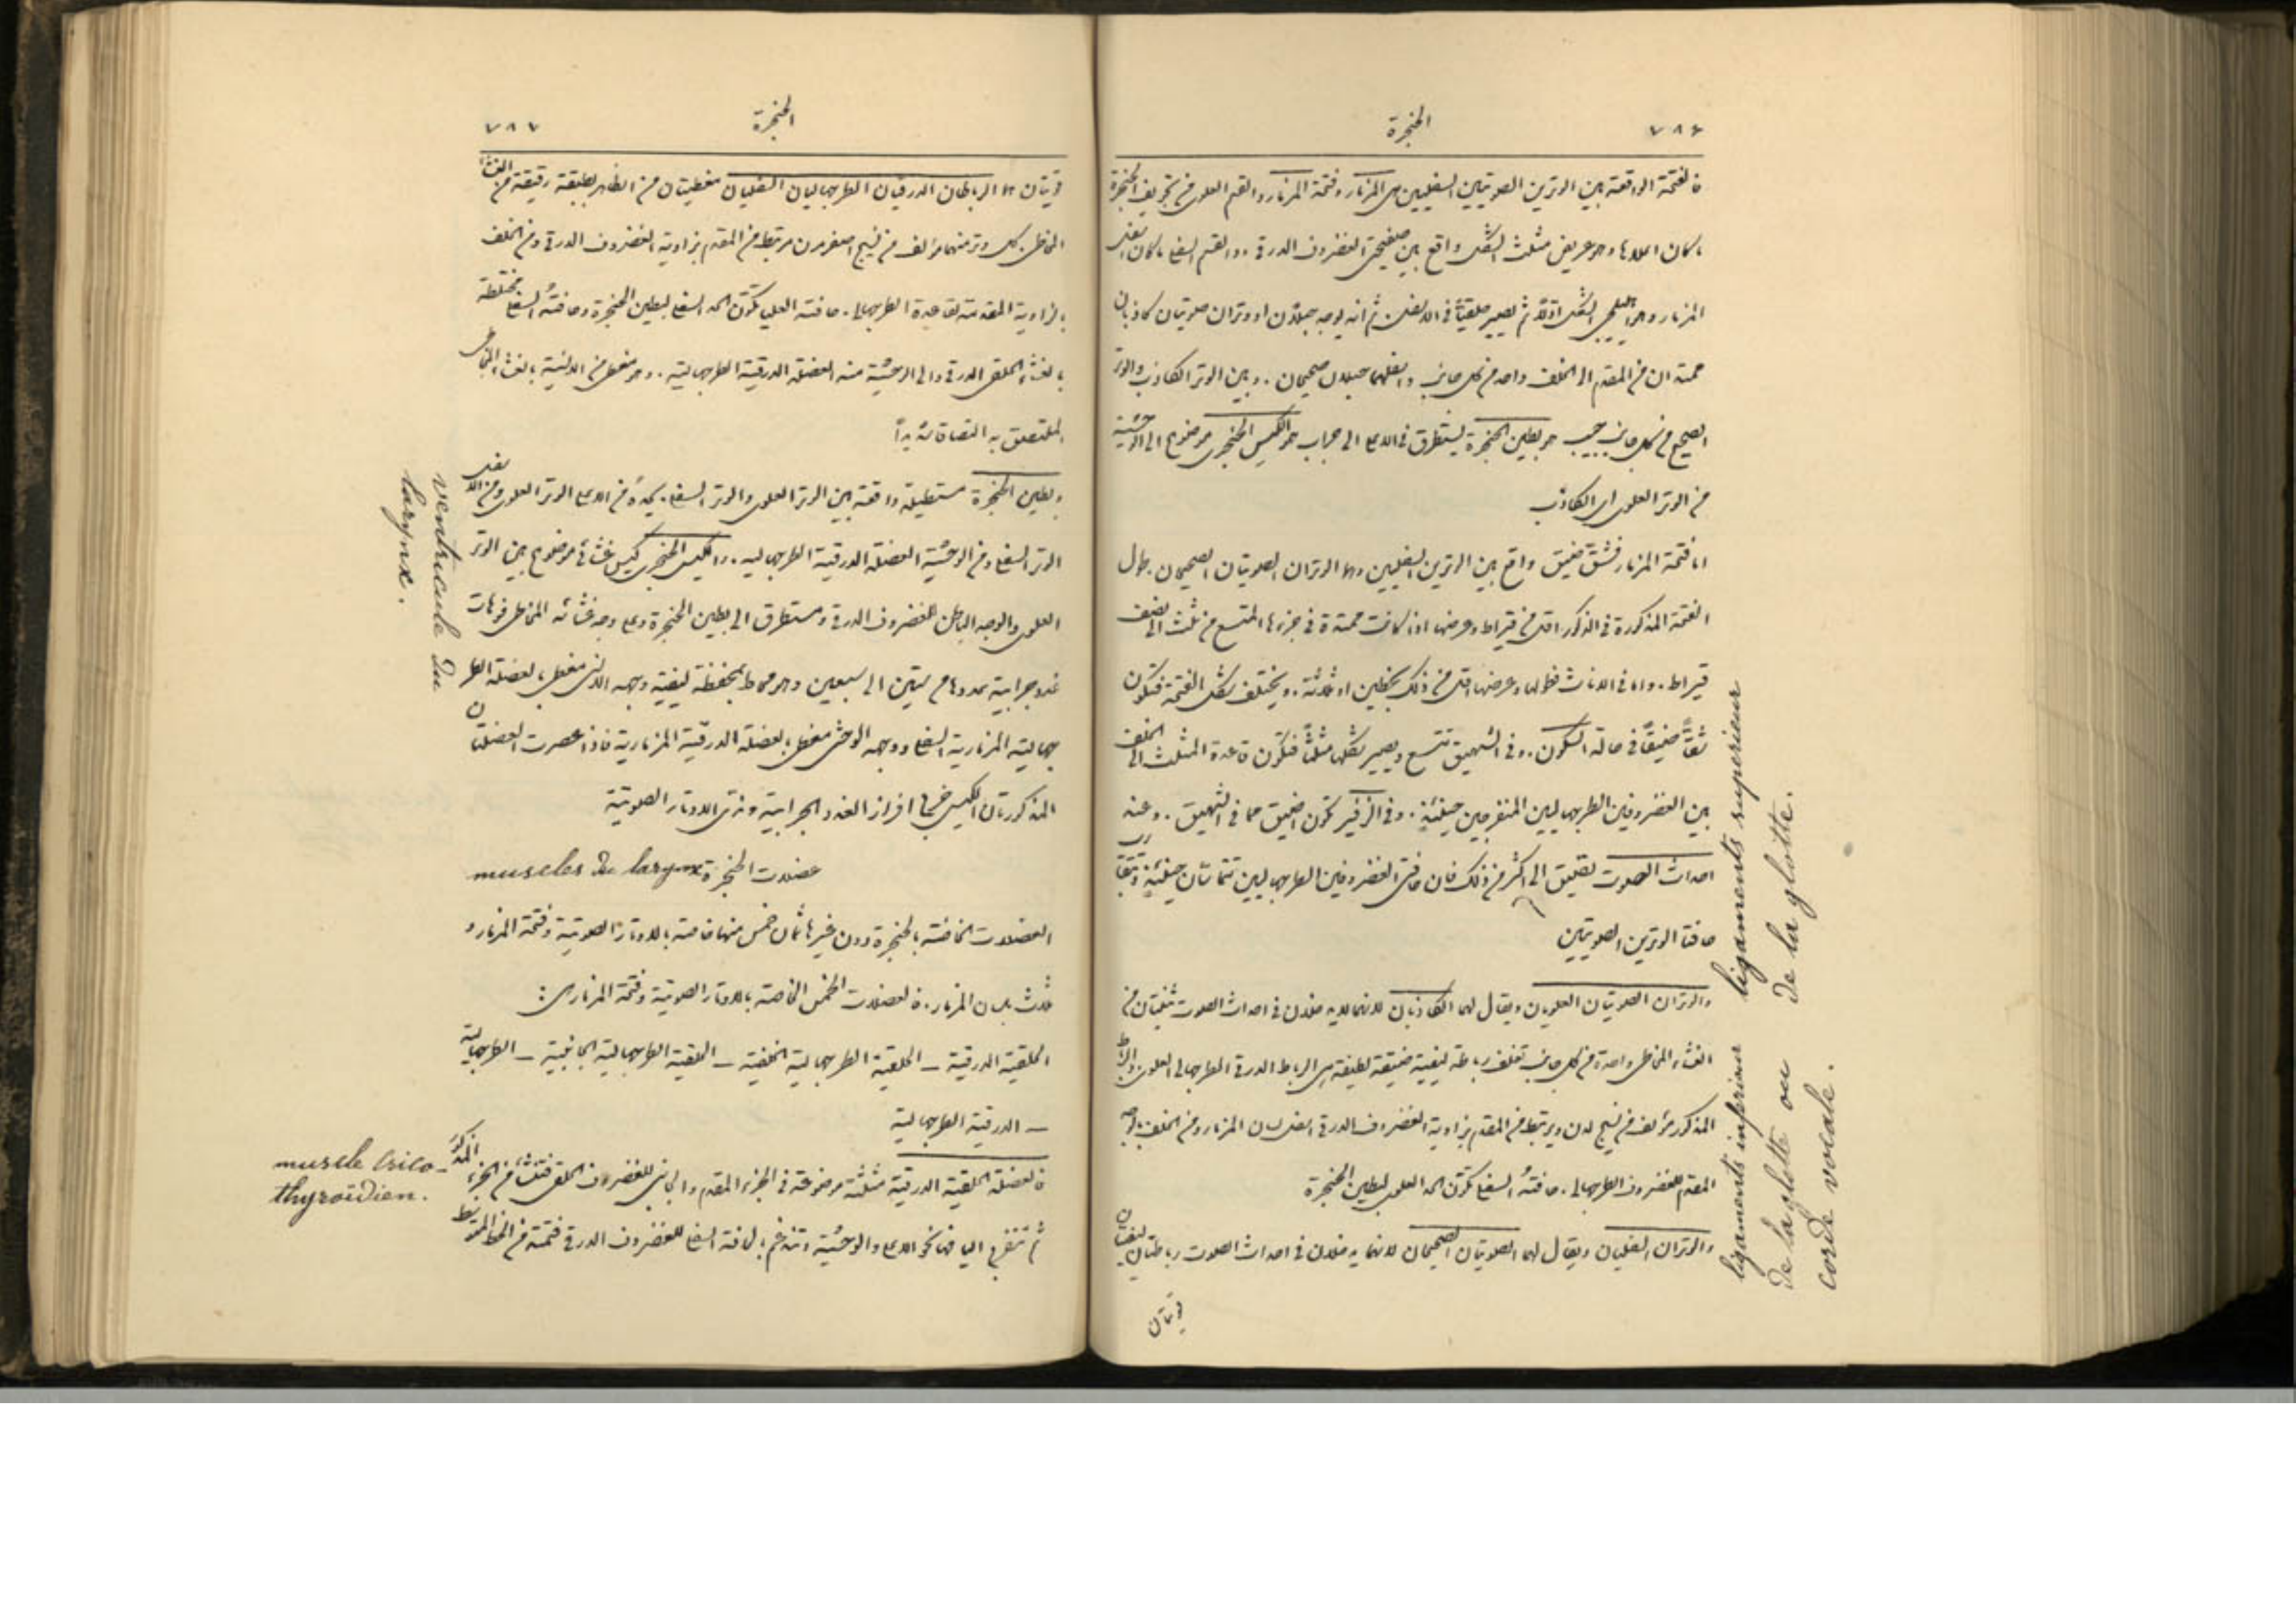 ٧٨٦
الحنجرة
فالفتحة الواقعة بين الوترين الصوتيين السفليين هى المزمار وفتحة المزمار والقسم العلوى من تجويف الحنجرة
ما كان اعلاها وهو عريض مثلث الشكل واقع بين صفيحتى الغضروف الدرقى. والقسم السفلى ما كان اسفل
المزمار وهو اهليلجى الشكل اولاً ثم يصير حلقياً فى الاسفل. ثم انه يوجد حبلان او وتران صوتيان كاذبان
ممتدان من المقدم الى الخلف واحد من كل جانب واسفلهما حبلان صحيحان. وبين الوتر الكاذب والوتر
الصحيح من كل جانب جيب هو بطين الحنجرة يستطرق فى الاعلى الى جراب هو الكيس الحنجرى موضوع الى الوحشية
من الوتر العلوى اى الكاذب
اما فتحة المزمار فشق ضيق واقع بين الوترين السفليين وهما الوتران الصوتيان الصحيحان. طول
الفتحة المذكورة فى الذكور اقل من قيراط وعرضها اذا كانت ممتدة فى جزءها المتسع من ثلث الى نصف
قيراط. واما فى الاناث فطولها وعرضها اقل من ذلك بخطين او ثلاثة. ويختلف شكل الفتحة فتكون
شقاً ضيقاً فى حالة السكون. وفى الشهيق تتسع ويصير شكلها مثلثاً فتكون قاعدة المثلث الى الخلف
بين الغضروفين الطرجهاليين المنفرجين حينئذٍ. وفى الزفير تكون اضيق مما فى الشهيق. وعند
احداث الصوت تضيق الى اكثر من ذلك فان حافتى الغضروفين الطرجهاليين تتماسان حينئذٍ وتتقارب
حافتا الوترين الصوتيين
والوتران الصوتيان العلويان ويقال لهما الكاذبان لانهما لا يدخلان فى احداث الصوت ثنيتان من
الغشاء المخاطى واحدة من كل جانب تغلف رباطة ليفية ضيقة لطيفة هى الرباط الدرقى الطرجهالى العلوى والرباط
المذكور مؤلف من نسيج لدن ويرتبط من المقدم بزاوية الغضروف الدرقى اسفل لسان المزمار ومن الخلف بالوجه
المقدم للغضروف الطرجهالى. حافته السفلى تكوّن الحد العلوى لبطين الحنجرة
والوتران السفليان ويقال لهما الصوتيان الصحيحان لانهما يدخلان فى احداث الصوت رباطتان ليفيتان
قويتان
ligaments superieur
de la glotte.
ligaments inferieur
de la glotte ou
corde vocale.
٧٨٧
الحنجرة
قويتان هما الرباطان الدرقيان الطرجهاليان السفليان مغطيتان من الظاهر بطبقة رقيقة من الغشاء
المخاطى. كل وتر منهما مؤلف من نسيج اصفر مرن مرتبط من المقدم بزاوية الغضروف الدرقى ومن الخلف
بالزاوية المقدمة لقاعدة الطرجهالى. حافته العليا تكوّن الحد السفلى لبطين الحنجرة وحافته السفلى مختلطة
بالغشاء الحلقى الدرقى والى الوحشية منه العضلة الدرقية الطرجهالية. وهو مغطى من الانسية بالغشاء المخاطى
الملتصق به التصاقا شديداً
وبطين الحنجرة مستطيلة واقعة بين الوتر العلوى والوتر السفلى. يحده من الاعلى الوتر العلوى ومن الاسفل
الوتر السفلى ومن الوحشية العضلة الدرقية الطرجهالية. والكيس الحنجرى كيس غشائى موضوع بين الوتر
العلوى والوجه الباطن للغضروف الدرقى ومستطرق الى بطين الحنجرة وعلى وجه غشائه المخاطى فوهات
غدد جرابية عددها من ستين الى سبعين وهو محاط بمحفظة ليفية وجهه الانسى مغطى بالعضلة الطر
جهالية المزمارية السفلى ووجهه الوحشى مغطى بالعضلة الدرقية المزمارية فاذا عصرت العضلتان
المذكورتان الكيس خرج افراز الغدد الجرابية وندى الاوتار الصوتية
عضلات الحنجرة muscles du larynx
العضلات الخاصة بالحنجرة دون غيرها ثمان خمس منها خاصة بالاوتار الصوتية وفتحة المزمار و
ثلاث بلسان المزمار. فالعضلات الخمس الخاصة بالاوتار الصوتية وفتحة المزمار هى:
الحلقية الدرقية – الحلقية الطرجهالية الخلفية – الحلقية الطرجهالية الجانبية – الطرجهالية
– الدرقية الطرجهالية
فالعضلة الحلقية الدرقية مثلثة موضوعة فى الجزء المقدم والجانبى للغضروف الحلقى تنشأ من الجزء المذكور
ثم تتفرج اليافها نحو الاعلى والوحشية وتندغم بالحافة السفلى للغضروف الدرقى ممتدة من الخط المتوسط
ventricule du
larynx.
muscle crico-
thyroïdien.